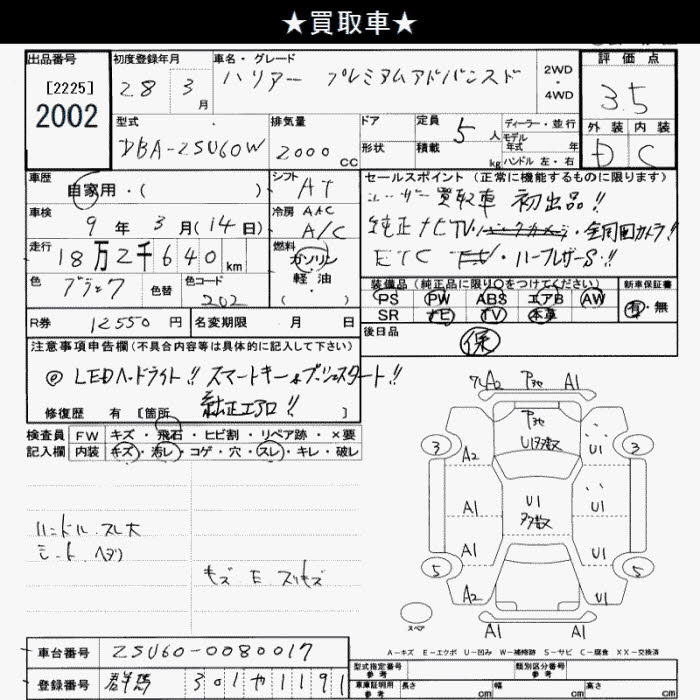 ★買取車★
出品番号
[2225]
2002
初度登録年月
28 3 月
車名・グレード
ハリアー プレミアムアドバンスド
2WD
・
4WD
評価点
3.5
外装 内装
D C
型式
DBA-ZSU60W
排気量
2000 cc
ドア
形状
定員 5 人
積載 kg
ディーラー・並行
モデル
年式 年
ハンドル 左・右
車歴
自家用・( )
シフト AT
セールスポイント (正常に機能するものに限ります)
ユーザー買取車 初出品!!
車検 9 年 3 月(14 日)
冷房 AAC
A/C
純正ナビTV・バックカメラ・全周囲カメラ!!
走行 18万2千640 km
燃料
ガソリン
軽油
( )
ETC ・ハーフレザーS・!!
色 ブラック 色替 色コード 202
装備品 (純正品に限り○をつけてください) 新車保証書
PS PW ABS エアB AW
SR ナビ TV 本革
有・無
R券 12550 円 名変期限 月 日
後日品
保
注意事項申告欄 (不具合内容等は具体的に記入して下さい)
◎ LEDヘッドライト!! スマートキー&プッシュスタート!!
純正エアロ!!
修復歴 有 [箇所 ]
検査員 FW キズ・飛石・ヒビ割・リペア跡・×要
記入欄 内装 キズ・汚レ・コゲ・穴・スレ・キレ・破レ
ハンドル スレ大
シート ヘタリ
キズ E スリキズ
A2 P3 A1
P3
U1 多数
3 A2 U1 3
A1 U1 多数 U1
A1 U1
5 A2 U1 5
A1 A1
スペア
A-キズ E-エクボ U-凹み W-補修跡 S-サビ C-腐食 XX-交換済
車台番号 ZSU60-0080017
登録番号 群馬 301や1191
型式指定番号
参考
類別区分番号
参考
車庫証明用
参考
長さ cm 幅 cm 高さ cm